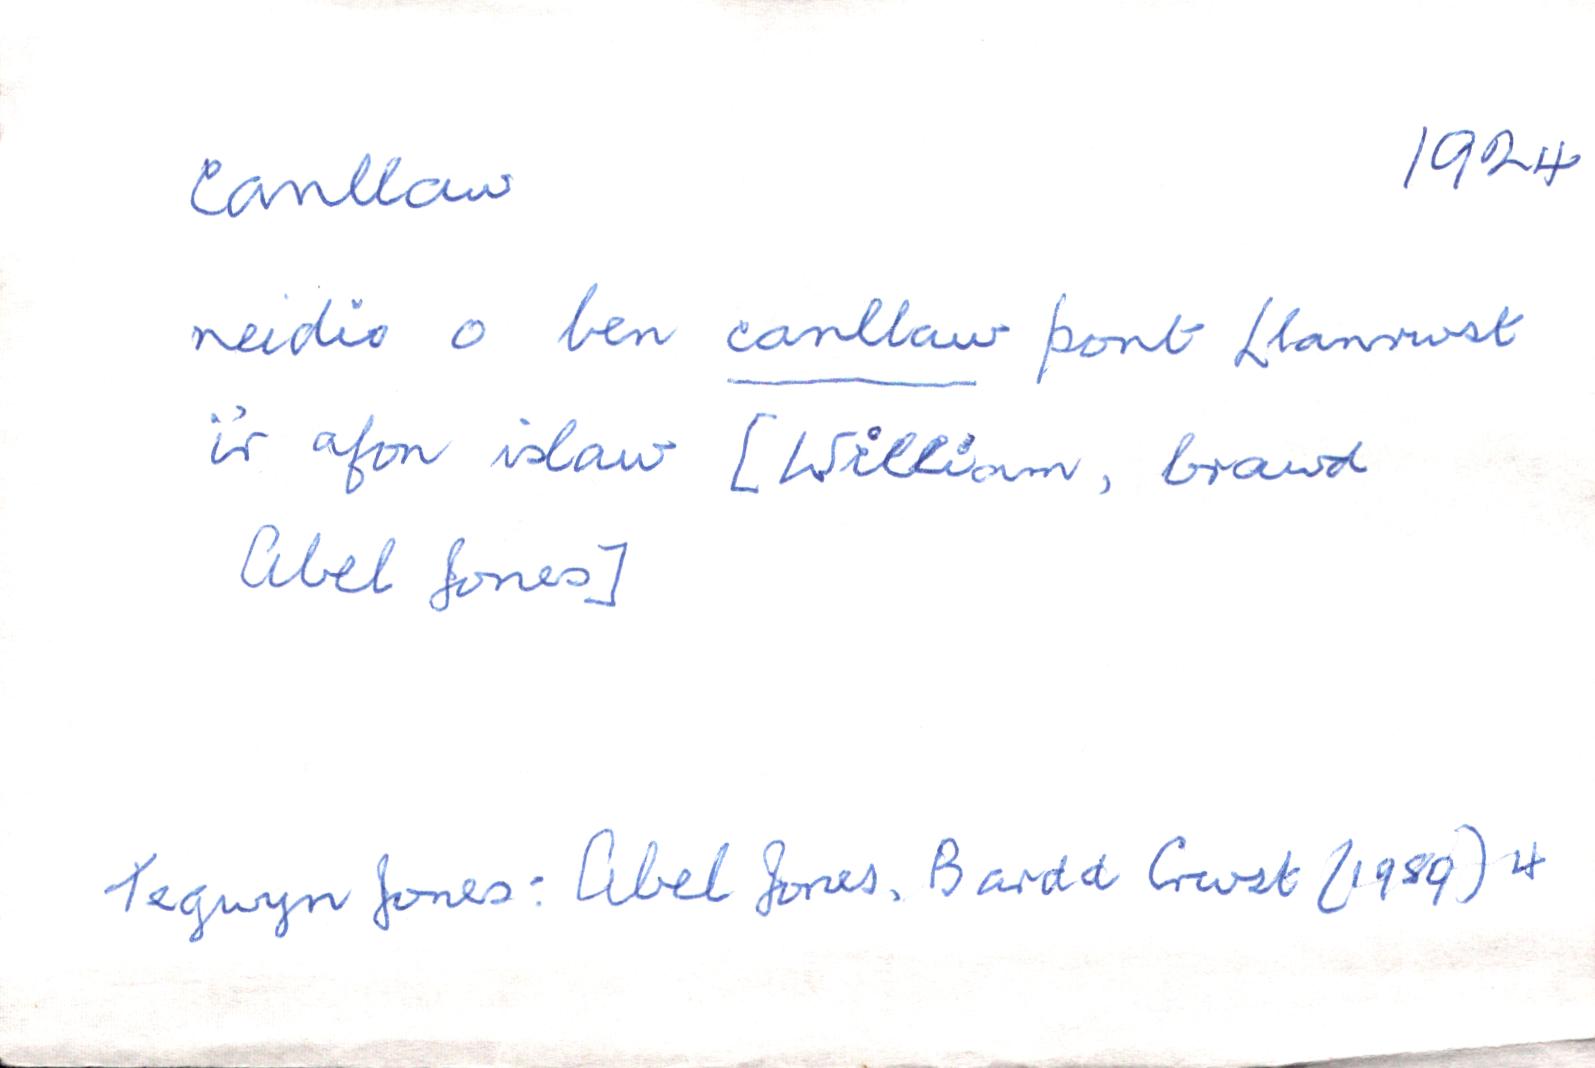 Canllaw 1924
neidio o ben canllaw pont Llanrwst
i'r afon islaw [William, brawd
Abel Jones]
Tegwyn Jones: Abel Jones, Bardd Crwst (1989) 4